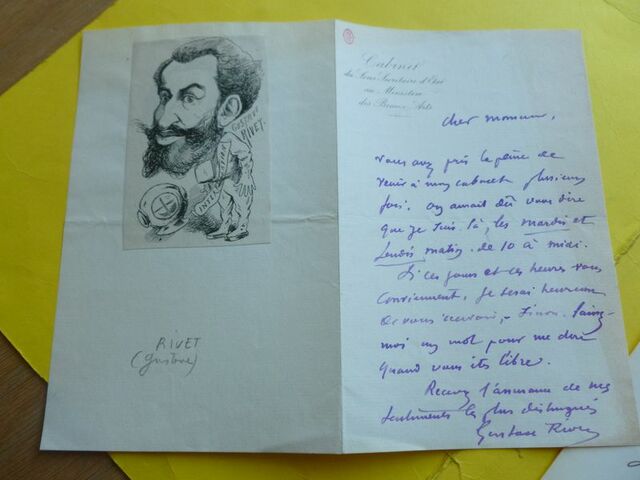 GUSTAVE
RIVET.
RIVET
(Gustave)
Cabinet
du Sous Secrétaire d'Etat
au Ministère
des Beaux-Arts
cher monsieur,
vous avez pris la peine de
venir à mon cabinet plusieurs
fois. on aurait dû vous dire
que je suis là, les mardis et
lundis matin de 10 à midi.
Si ces jours et ces heures vous
conviennent, je serai heureux
de vous recevoir, - Sinon,
moi un mot pour me dire
quand vous êtes libre.
Recevez l'assurance de mes
sentiments les plus distingués
Gustave Rivet